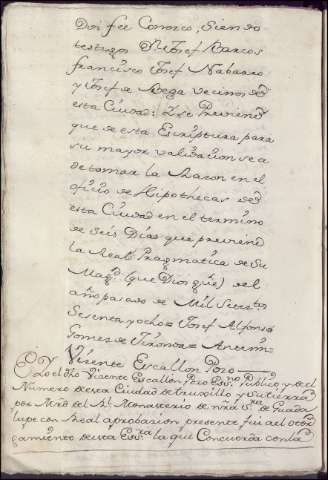 Doi fee Conozco, Siendo
testigos Dn. Josef Barcos
Francisco Josef Nabarro
y Josef de Vega vecinos de
esta Ciudad: Y se Previene
que de esta Escriptura para
su mayor validacion se a
de tomar la Razon en el
oficio de Hipothecas de
esta Ciudad en el termino
de Seis Dias que previene
la Real Pragmatica de Su
Magd. (que Dios gue.) del
año pasado de Mil Setecs.
Sesenta y ocho = Josef Alfonso
Gomez de Tirones = Antemi =
Vizente Escallon Pozo
Yo el dho Vizente Escallon Pozo Essno. Publico y del
Numero de esta Ciudad de truxillo y su tierra
por Mrd del Rl. Monasterio de nrâ Sra. de Guada
lupe con Real aprobacion presente fui al otor
gamiento de esta Essra. la que Concuerda con la